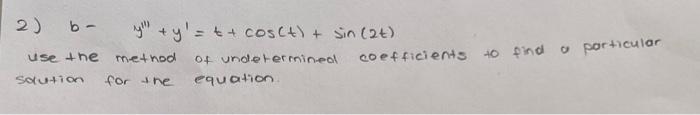 2) b- y''' + y' = t + cos(t) + sin(2t)
use the method of undetermined coefficients to find a particular
solution for the equation.